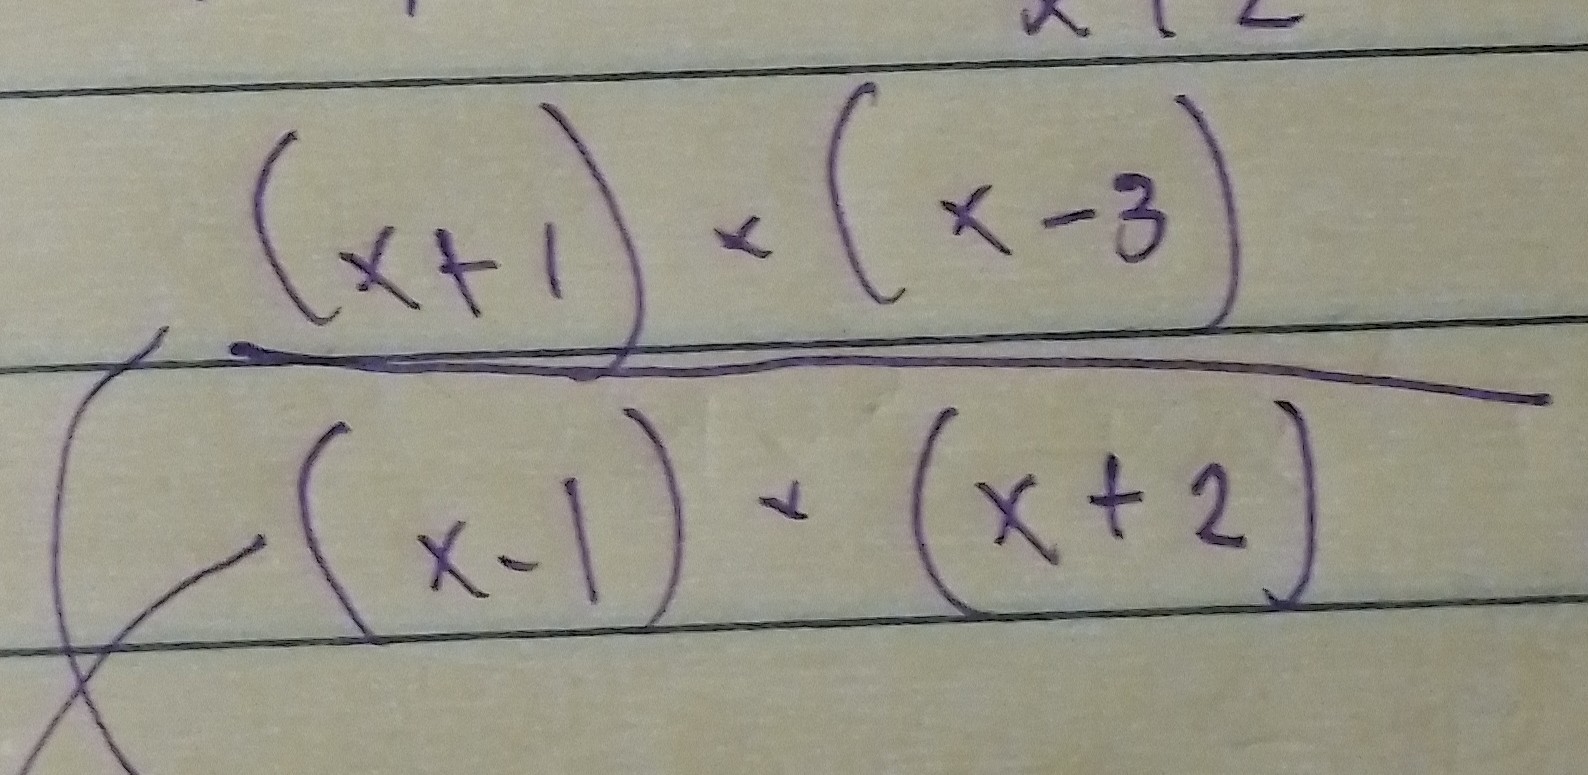 x + 2
(x+1) × (x-3)
(x-1) × (x+2)